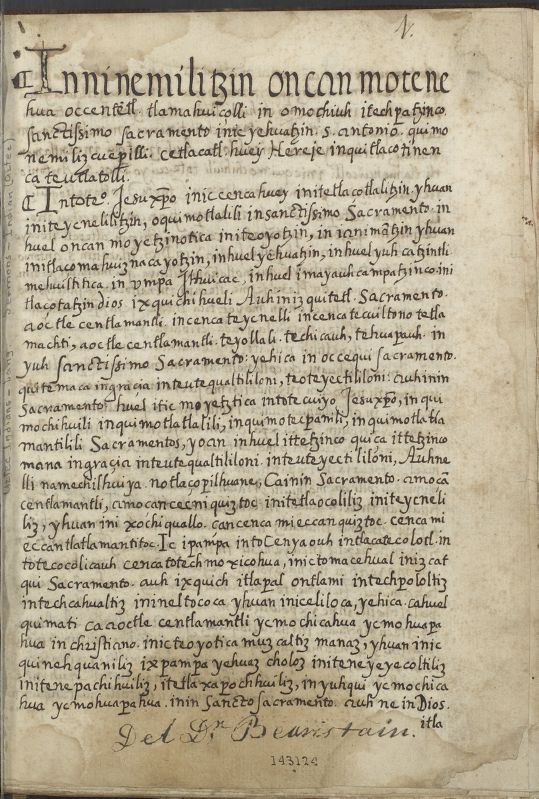 1.
¶ Inninemilitzin oncan motene
hua occentetl. tlamahuicolli in omochiuh itechpatzinco.
sanctissimo sacramento inic yehuatzin. S. antonio. quimo
nemilizcuepilli. cetlacatl. huey Hereje inquitlacotinen
ca teutlatolli.
¶ Intoteo. Jesuxpo inic cenca huey initetlacotlalitzin, yhuan
initeycnelilitzin, oquimotlalili insanctissimo Sacramento. in
huel oncan moyetzinotica initeoyotzin, in ianimantzin yhuan
initlacomahuiznacayotzin, inhuel yehuatzin, inhuel yuh catzintli
mehuiltitica. in vmpa Ilhuicac, inhuel imayauhcampatzinco. ini
tlaçotatzin dios. ixquichihueli Auh inizquitetl. Sacramento.
aoctle centlamantli. incenca teycnelli incenca tecuiltono tetla
machti, aoctle centlamantli. teyollali. techicauh, tehuapauh. in
yuh sanctissimo Sacramento: yehica in occequi sacramento.
quitemaca ingracia inteutequaltililoni, teoteyectililoni: auh inin
Sacramento. huel itic moyetztica intotecuiyo Jesuxpo, in qui
mochihuili inquimotlatlalili, inquimotecpanili, inquimotlatla
mantilili Sacramentos, yoan inhuel ittetzinco quiça ittetzinco
mana ingracia inteutequaltililoni. inteuteyectililoni, Auhne
lli namechilhuiya. notlaçopilhuane, Cainin Sacramento. amoca
centlamantli, amocancecni quiztoc. initetlaocoliliz initeycneli
liz, yhuan ini xochiquallo. cancenca mieccan quiztoc. cenca mi
eccantlatlamantitoc. Ic ipampa intoTenyaouh intlacatecolotl. in
totecocolicauh cenca totech moxicohua, inic tomacehual inizcat
qui Sacramento. auh ixquich itlapal ontlami intechpololtiz
intechcahualtiz inineltococa yhuan iniceliloca, yehica. cahuel
quimati ca aoctle centlamantli ycmochicahua ycmohuapa
hua in christiano. inic teoyotica muzcaltiz manaz, yhuan inic
quinehquaniliz ixpampa yehuaz choloz initeneyeyecoltiliz
initenepachihuiliz, itetlaxapochhuiliz, in yuhqui ycmochica
hua ycmohuapahua. inin Sancto sacramento. auh ne in Dios.
itla
Del Dr. Beristain.
143124